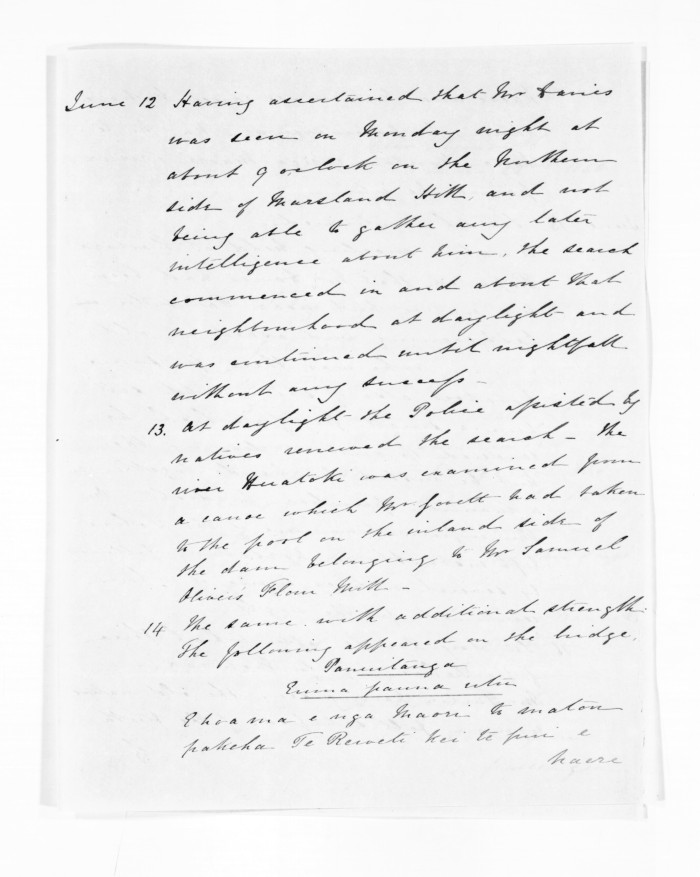 June 12 Having ascertained that Mr Davies
was seen on Monday night at
about 9 o'clock on the Northern
side of Marsland Hill, and not
being able to gather any later
intelligence about him, the search
commenced in and about that
neighbourhood at daylight and
was continued until nightfall
without any success -
13. At daylight the Police assisted by
natives renewed the search - The
river Huatoki was examined from
a canoe which Mr had taken
to the pool on the inland side of
the dam belonging to Mr Samuel
Oliver's Flour Mill -
14 The same with additional strength.
The following appeared on the bridge.
Panuitanga
pauna utu
E hoa ma e nga Maori to matou
pakeha Te Reweti kei te e